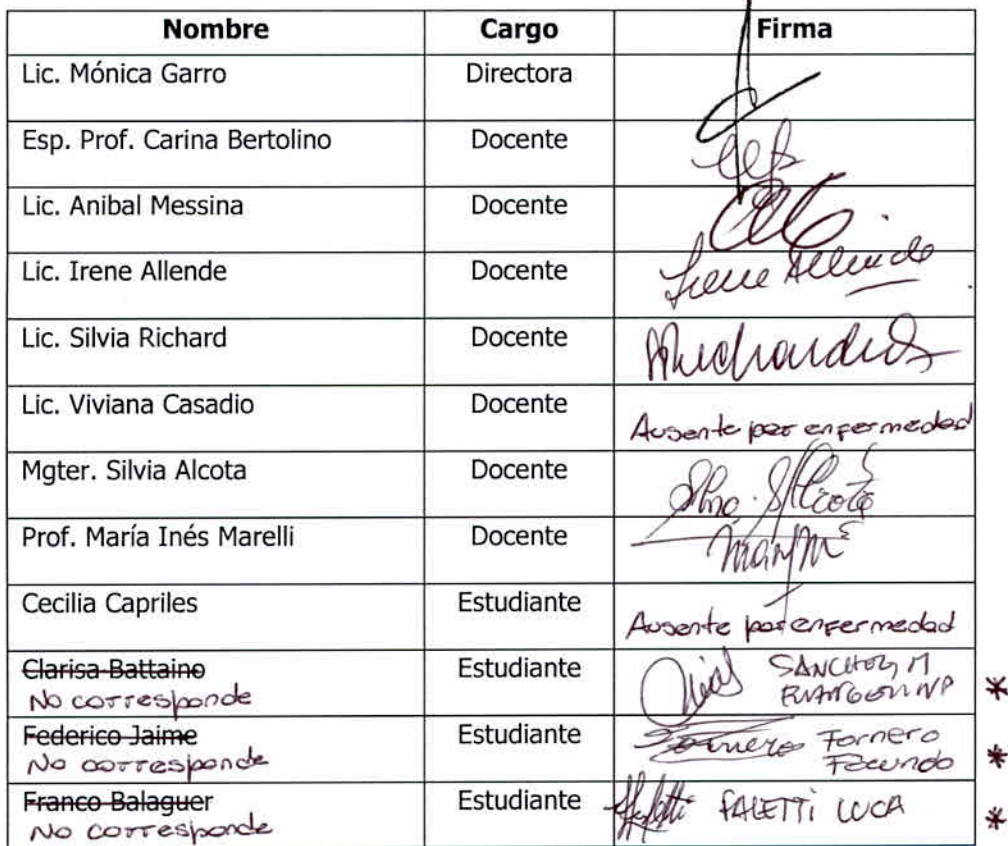 Nombre Cargo Firma
Lic. Mónica Garro Directora
Esp. Prof. Carina Bertolino Docente
Lic. Anibal Messina Docente
Lic. Irene Allende Docente Irene Allende
Lic. Silvia Richard Docente
Lic. Viviana Casadio Docente Ausente por enfermedad
Mgter. Silvia Alcota Docente
Prof. María Inés Marelli Docente
Cecilia Capriles Estudiante Ausente por enfermedad
Clarisa Battaino Estudiante SANCHEZ, M
No corresponde *
Federico Jaime Estudiante Fornero Fornero
No corresponde Facundo *
Franco Balaguer Estudiante FALETTI LUCA
No corresponde *